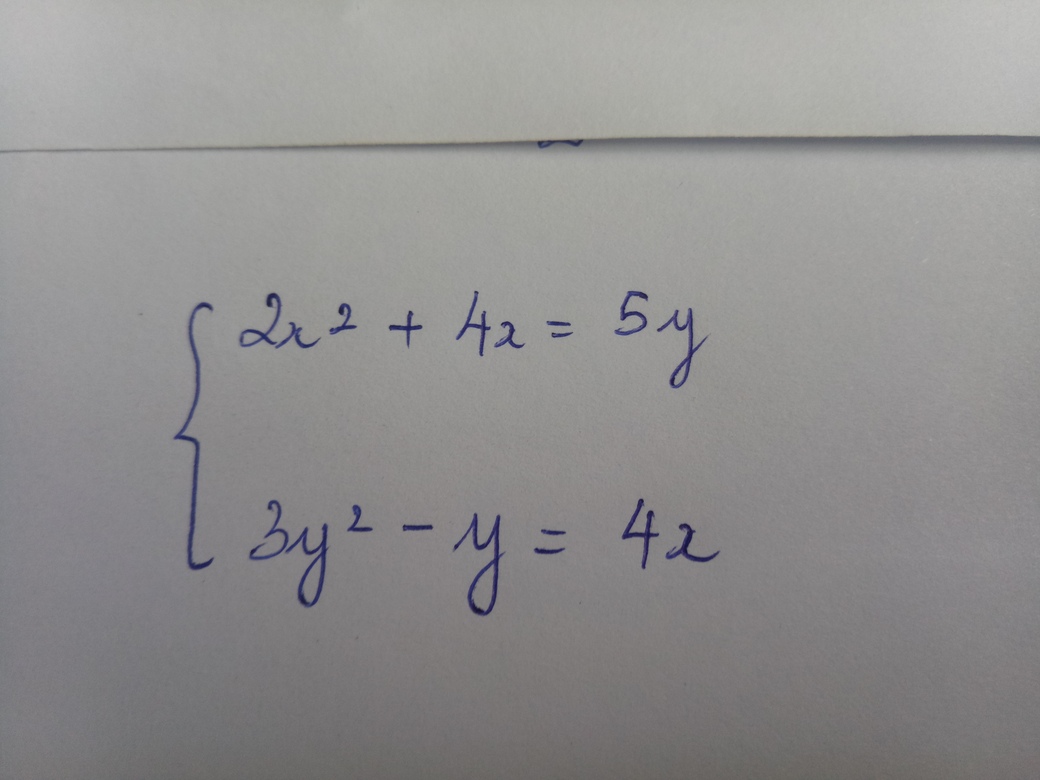 2x² + 4x = 5y
3y² - y = 4x